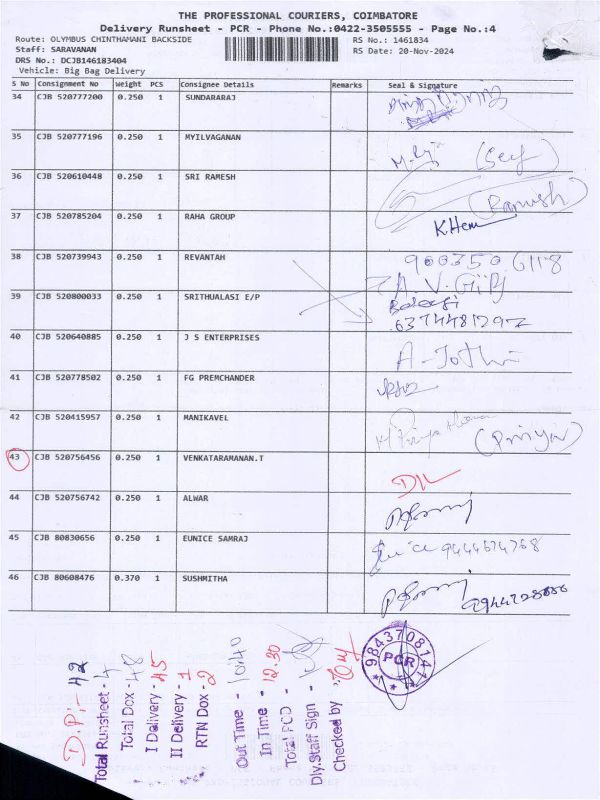 THE PROFESSIONAL COURIERS, COIMBATORE
Delivery Runsheet - PCR - Phone No.:0422-3505555 - Page No.:4
Route: OLYMBUS CHINTHAMANI BACKSIDE RS No.: 1461834
Staff: SARAVANAN RS Date: 20-Nov-2024
DRS No.: DCJB146183404
Vehicle: Big Bag Delivery
S No Consignment No Weight PCS Consignee Details Remarks Seal & Signature
34 CJB 520777200 0.250 1 SUNDARARAJ
35 CJB 520777196 0.250 1 MYILVAGANAN
36 CJB 520610448 0.250 1 SRI RAMESH (Ramesh)
37 CJB 520785204 0.250 1 RAHA GROUP K.Hem
38 CJB 520739943 0.250 1 REVANTAH 900350 6118
39 CJB 520800033 0.250 1 SRITHUALASI E/P A.V.Giri
Balaji
6374481292
40 CJB 520640885 0.250 1 J S ENTERPRISES A-Jothi
41 CJB 520778502 0.250 1 FG PREMCHANDER
42 CJB 520415957 0.250 1 MANIKAVEL (Priya)
43 CJB 520756456 0.250 1 VENKATARAMANAN.T DIL
44 CJB 520756742 0.250 1 ALWAR
45 CJB 80830656 0.250 1 EUNICE SAMRAJ 9444674768
46 CJB 80608476 0.370 1 SUSHMITHA
D.Pi:- 42
Total Runsheet - 4
Total Dox - 48
I Delivery - 45
II Delivery - 1
RTN Dox - 2
Out Time - 10:40
In Time - 12.30
Total POD -
Dly.Staff Sign -
Checked by -
9843708141
PCR